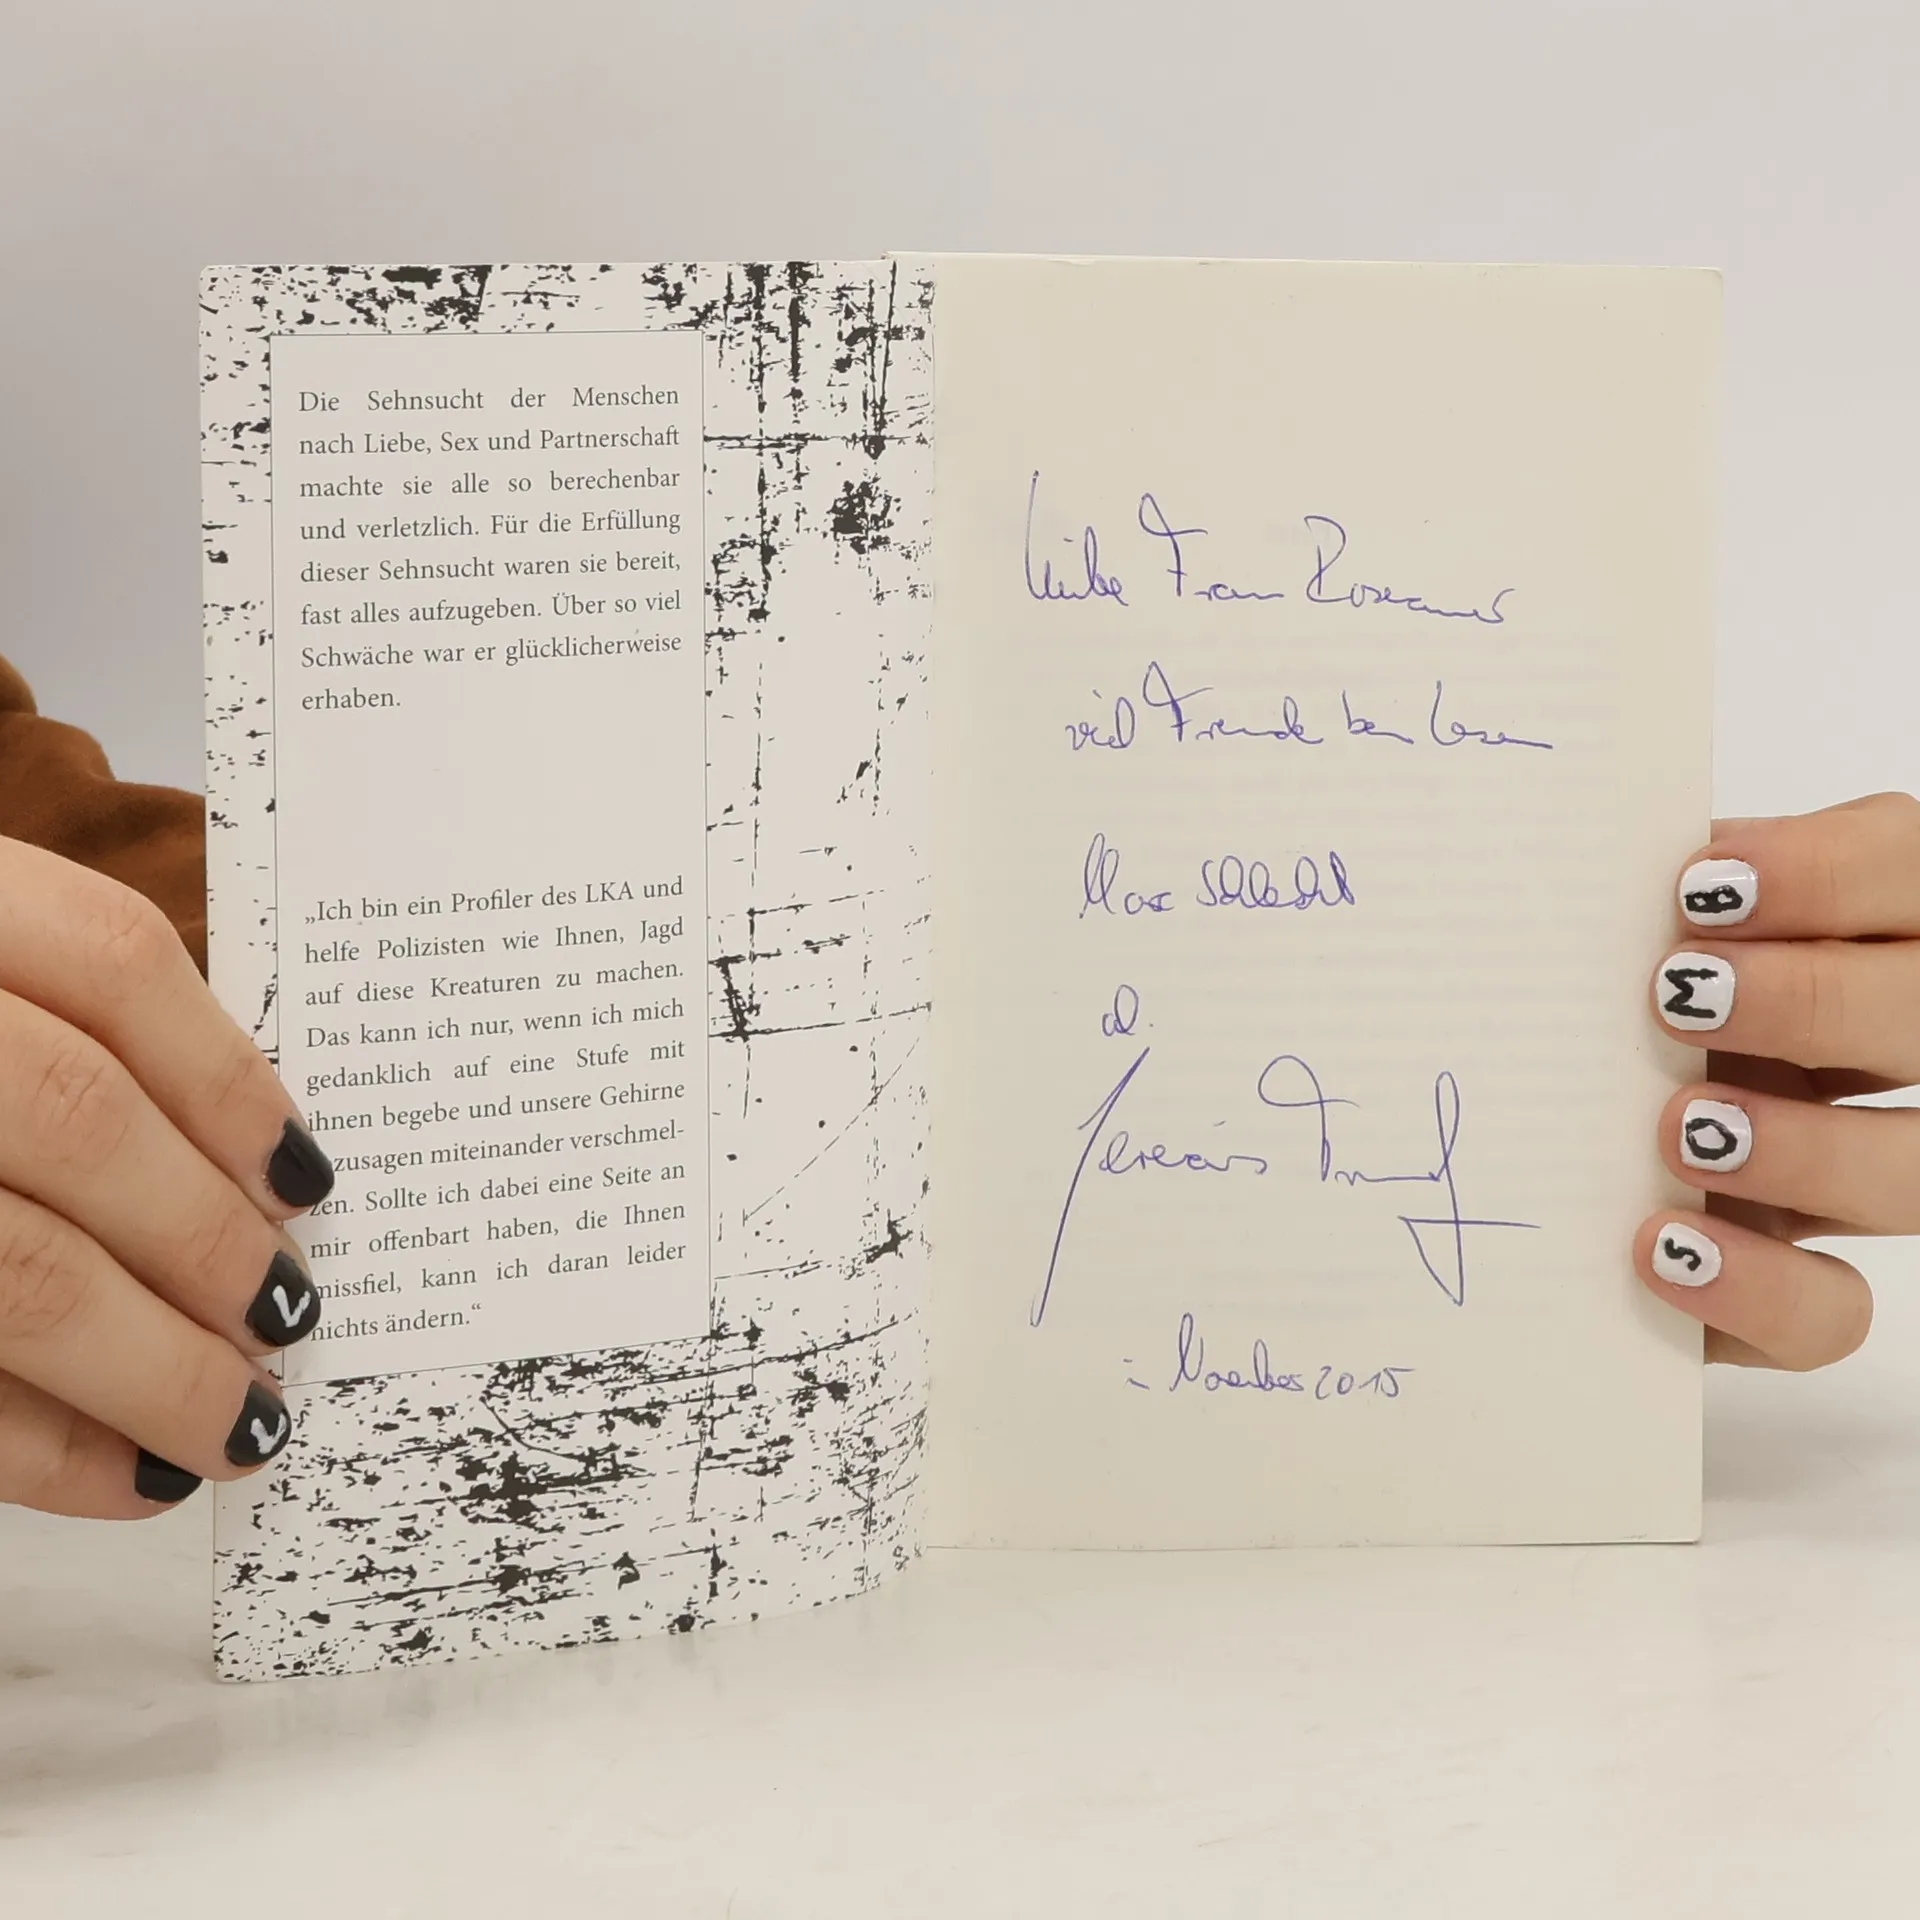 Die Sehnsucht der Menschen
nach Liebe, Sex und Partnerschaft
machte sie alle so berechenbar
und verletzlich. Für die Erfüllung
dieser Sehnsucht waren sie bereit,
fast alles aufzugeben. Über so viel
Schwäche war er glücklicherweise
erhaben.
„Ich bin ein Profiler des LKA und
helfe Polizisten wie Ihnen, Jagd
auf diese Kreaturen zu machen.
Das kann ich nur, wenn ich mich
gedanklich auf eine Stufe mit
ihnen begebe und unsere Gehirne
zusagen miteinander verschmel-
zen. Sollte ich dabei eine Seite an
mir offenbart haben, die Ihnen
missfiel, kann ich daran leider
nichts ändern.“
Frau
viel Freude beim Lesen
Max
November 2015
B
M
O
S
L
L